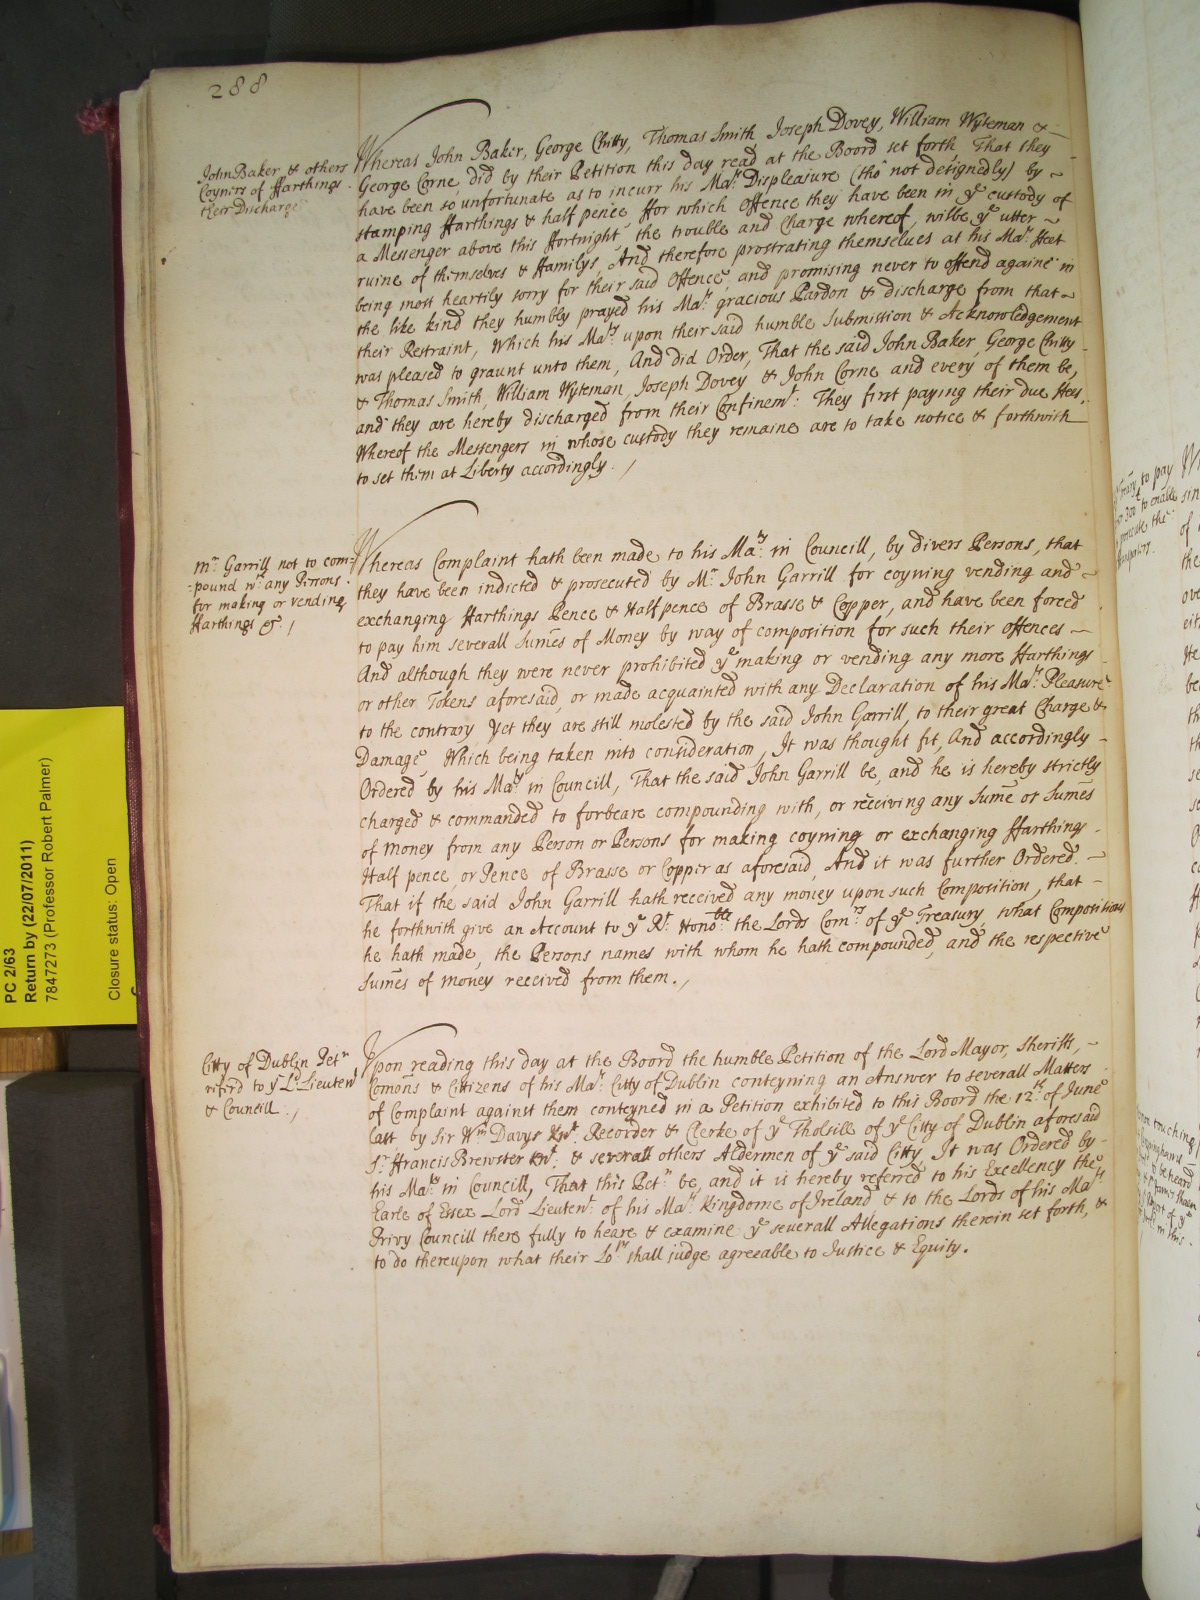 288
John Baker, & others
Coyners of ffarthings
their Discharge
Whereas John Baker, George Chitty, Thomas Smith Joseph Dovey, William Wyteman &
George Corne, did by their Petition this day read at the Board set forth That they
have been so unfortunate as to incurr his Maᵗˢ Displeasure (tho' not designedly) by
stamping ffarthings & half pence ffor which Offence they have been in yᵉ custody of
a Messenger above this ffortnight the trouble and Charge whereof, wilbe yᵉ utter
ruine of themselves & ffamilys, And therefore prostrating themselves at his Maᵗˢ ffeet
being most heartily sorry for their said Offence, and promising never to offend againe in
the like kind they humbly prayed his Maᵗˢ gracious Pardon & discharge from that
their Restraint, Which his Maᵗʸ upon their said humble Submission & Acknowledgement
was pleased to graunt unto them, And did Order, That the said John Baker, George Chitty
& Thomas Smith, William Wyteman, Joseph Dovey & John Corne and every of them be,
and they are hereby discharged from their Confinemᵗ: They first paying their due ffees,
Whereof the Messengers in whose custody they remaine are to take notice & forthwith
to set them at Liberty accordingly. /
Mʳ Garrill not to com=
=pound wᵗʰ any Persons
for making or vending
ffarthings &c. /
Whereas Complaint hath been made to his Maᵗʸ: in Councill, by divers Persons, that
they have been indicted & prosecuted by Mʳ John Garrill for coyning vending and
exchanging ffarthings Pence & Halfpence of Brasse & Copper, and have been forced
to pay him severall Sum̄es of Money by way of composition for such their offences
And although they were never prohibited yᵉ making or vending any more ffarthings
or other Tokens aforesaid, or made acquainted with any Declaration of his Maᵗˢ Pleasure
to the contrary, Yet they are still molested by the said John Garrill, to their great Charge &
Damage, Which being taken into consideration, It was thought fit, And accordingly
Ordered by his Maᵗʸ in Councill, That the said John Garrill be, and he is hereby strictly
charged & commanded to forbeare compounding with, or receiving any Sum̄e or Sum̄es
of Money from any Person or Persons for making coyning or exchanging ffarthings
Half pence, or Pence of Brasse or Copper as aforesaid, And it was further Ordered.
That if the said John Garrill hath received any money upon such Composition, that
he forthwith give an Account to yᵉ Rᵗ Honoᵇˡᵉ the Lords Comʳˢ of yᵉ Treasury, what Compositions
he hath made, the Persons names with whom he hath compounded, and the respective
Sum̄es of money received from them. /
Citty of Dublin Petⁿ
referd to yᵉ Lᵈ Lieutenᵗ
& Councill. /
Upon reading this day at the Board the humble Petition of the Lord Mayor, Sheriffs,
Com̄ons & Cittizens of his Maᵗˢ Citty of Dublin conteyning an Answer to severall Matters
of Complaint against them conteyned in a Petition exhibited to this Board the 12ᵗʰ of June
last by Sir Wᵐ Davys Knᵗ. Recorder & Clerke of yᵉ Tholsill of yᵉ Citty of Dublin aforesaid
Sʳ ffrancis Brewster Knᵗ: & severall others Aldermen of yᵉ said Citty, It was Ordered by
his Maᵗʸ in Councill, That this Petⁿ be, and it is hereby referred to his Excellency the
Earle of Essex Lord Lieutenᵗ of his Maᵗˢ Kingdome of Ireland & to the Lords of his Maᵗˢ
Privy Councill there fully to heare & examine yᵉ severall Allegations therein set forth, &
to do thereupon what their Loᵖˢ shall judge agreeable to Justice & Equity.
PC 2/63
Return by (22/07/2011)
7847273 (Professor Robert Palmer)
Closure status: Open